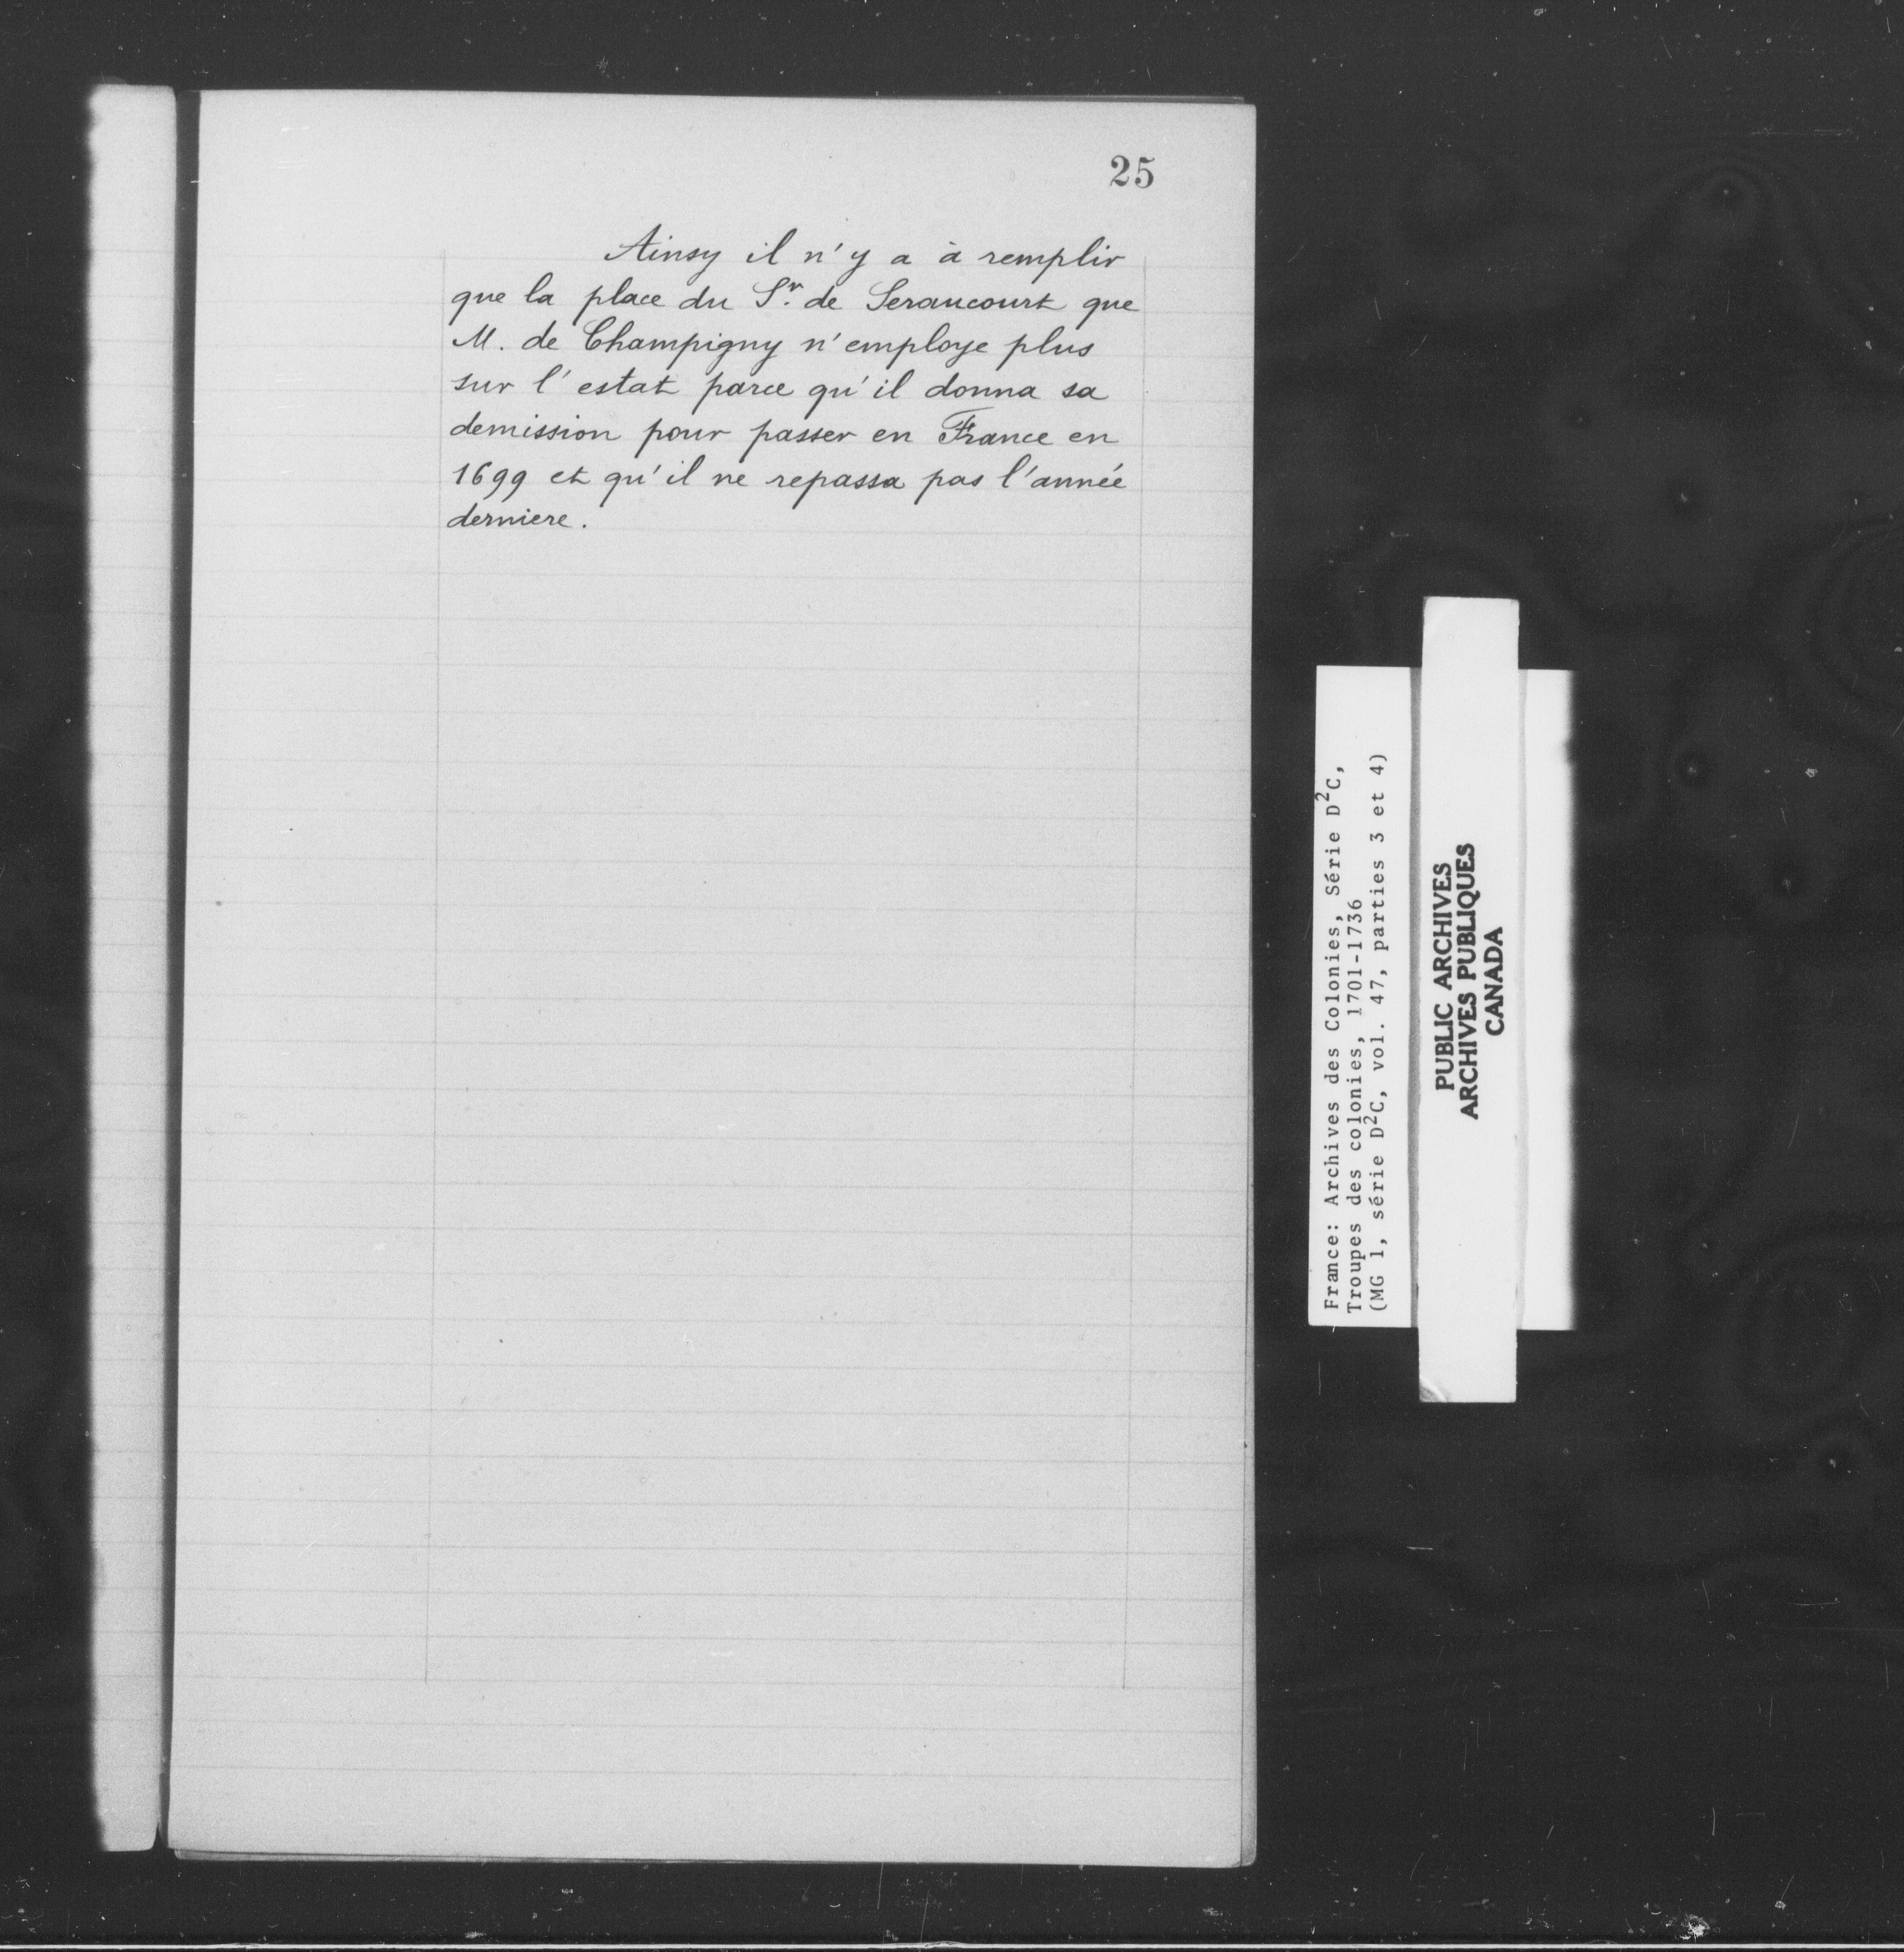 25
Ainsy il n'y a à remplir
que la place du Sr. de Seraucourt que
M. de Champigny n'employe plus
sur l'estat parce qu'il donna sa
demission pour passer en France en
1699 et qu'il ne repassa pas l'année
derniere.
France: Archives des Colonies, Série D²C,
Troupes des colonies, 1701-1736
(MG 1, série D²C, vol. 47, parties 3 et 4)
PUBLIC ARCHIVES
ARCHIVES PUBLIQUES
CANADA